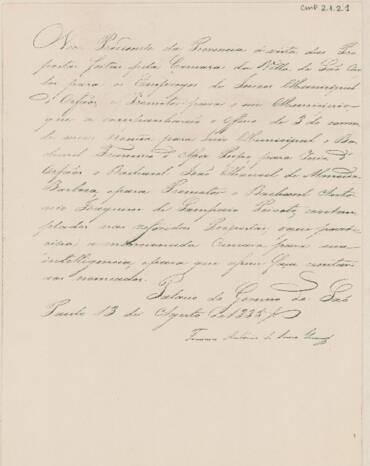 CMP 2.1.21
O Vice Presidente da Provincia á vista das Pro
postas feitas pela Camara da Villa de São Car
los para os Empregos de Juizes Municipal
d'Orfãos, e Promotor para o seu Municipio
que acompanharão o Officio de 3 do corren
te mez nomêa para Juiz Municipal o Ba
charel Francisco d' para Juiz d'
Orfãos o Bacharel João Manoel de
Barboza, e para Promotor o Bacharel Anto
nio Joaquim de Sampaio contem
plados nas referidas Propostas; o que parti
cipa a mencionada Camara para sua
intelligencia, e para que assim faça constar
aos nomeados.
Palacio do Governo de São
Paulo 13 de Agosto de 1835
Francisco Antonio de Souza